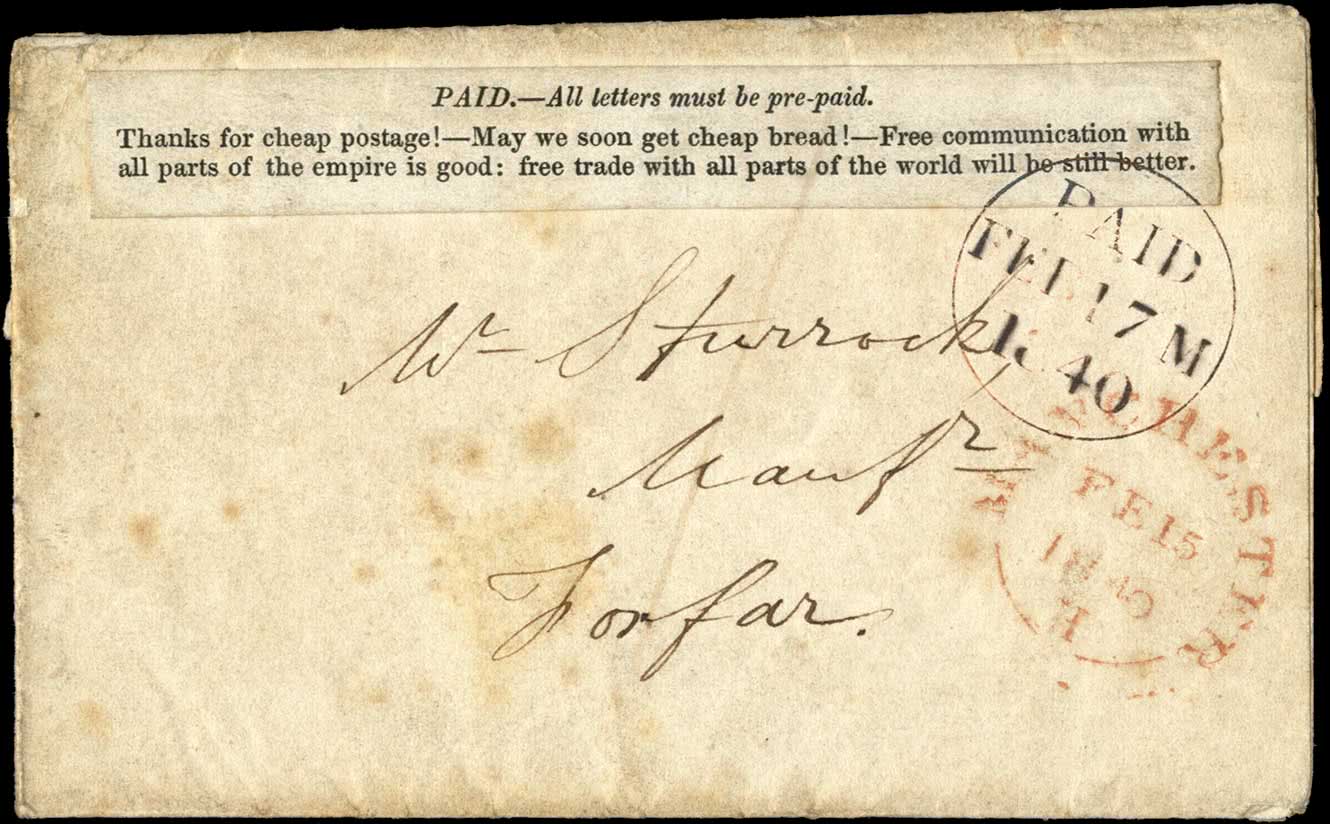 PAID.—All letters must be pre-paid.
Thanks for cheap postage!—May we soon get cheap bread!—Free communication with
all parts of the empire is good: free trade with all parts of the world will be still better.
PAID
FEB 17 M
1840
Mr Sturrock
Manfr
Forfar.
MANCHESTER
FE 15
1840
H